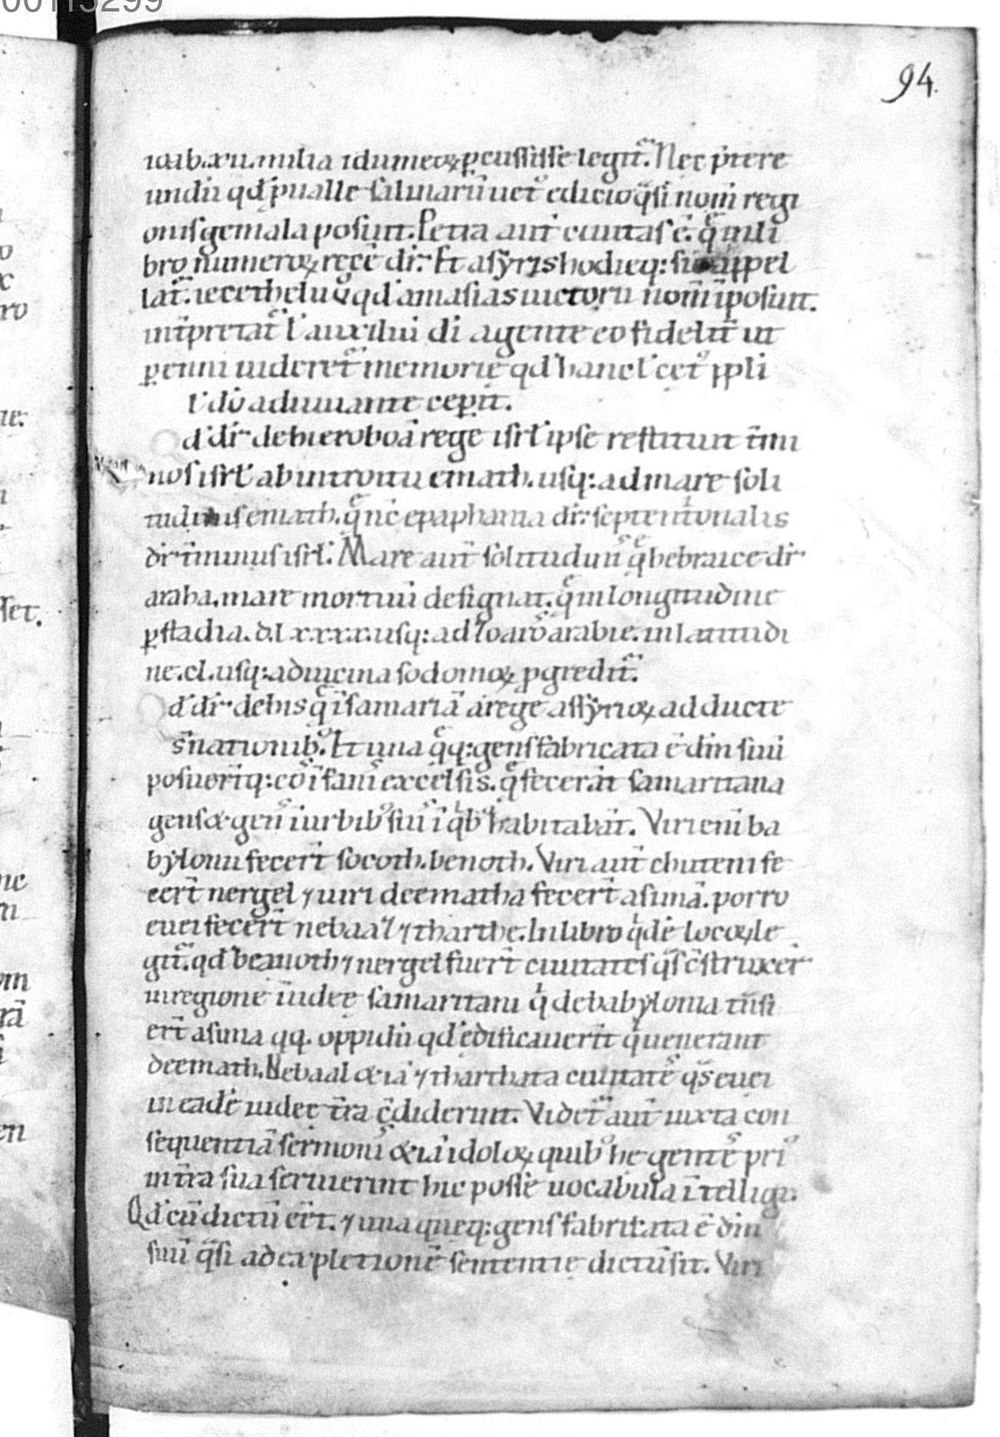 00115299
94.
ioab .xii. milia idumeoꝝ ꝑcussisse legit̄. Nec p̄tere
undū qd̄ p̄ ualle salinarū uet᷒ edicio q̄si nom̄ regi
onis gemala posuit. Petra aut̄ ciuitas ē. q̄ in li
bro numeroꝝ rece dr̄. Et asyriis hodieq: sic appel
lat̄. iecethelu ỏ qd̄ amasias uictoru nom̄ īposuit.
int̄pretat̄ ł auxiliū dī agente eo fidelit̄ ut
ꝑenni uideret̄ memorię qd̄ hanc ł cet᷒ ppli
ł dō adiuuante cepit.
d̄ dr̄ de hieroboā rege isrł ipse restituit t̄mi
nos isrł ab introitu emath. usq: ad mare soli
tudinis emath. q̄ nc̄ epaphania dr̄. septentrionalis
dr̄ t̄minus isrł. Mare aut̄ solitudinī q̄ hebraice dr̄
araba. mare mortuū designat. q̄ in longitudine
ꝑ stadia. dlxxxx. usq: ad zoarō arabie. in latitudi
ne. cl. usq: ad uicina sodomoꝝ ꝓgredit̄.
d̄ dr̄ de his q̄ ī samariā a rege assyrioꝝ adducte
s̄ nationib᷒. Et una q̄q: gens fabricata ē dm̄ suū
posuer̄tq: eō ī fanis excelsis. q̄ fecerāt samaritana
gens & gens ī urbib᷒ suis ī q̄b᷒ habitabāt. Viri enī ba
bylonii fecer̄t socoth. benoth. Viri aut̄ chuteni fe
cer̄t nergel ⁊ uiri de ematha fecer̄t asimā. porro
euei fecer̄t nebaał ⁊ tharthe. In libro q̄dē locoꝝ le
git̄. qd̄ benoth ⁊ nergel fuer̄t ciuitates q̄s c̄struxer̄
in regione iudeę samaritani q̄ de babylonia t̄nsi
er̄t asima qq. oppidū qd̄ edificauer̄t q̄ uenerant
de emath. Nebaal & iā ⁊ tharthata ciuitatē q̄s euei
in eadē iudeę t̄ra c̄diderunt. Videt̄ aut̄ iuxta con
sequentiā sermonis & iā idoloꝝ quib᷒ he gentes pri᷒
in t̄ra sua seruierint hic posse uocabula ītelligi.
Qd̄ cū dictū eēt. ⁊ una queq: gens fabricata ē dm̄
suū q̄si ad expletionē sententię dictū sit. Viri